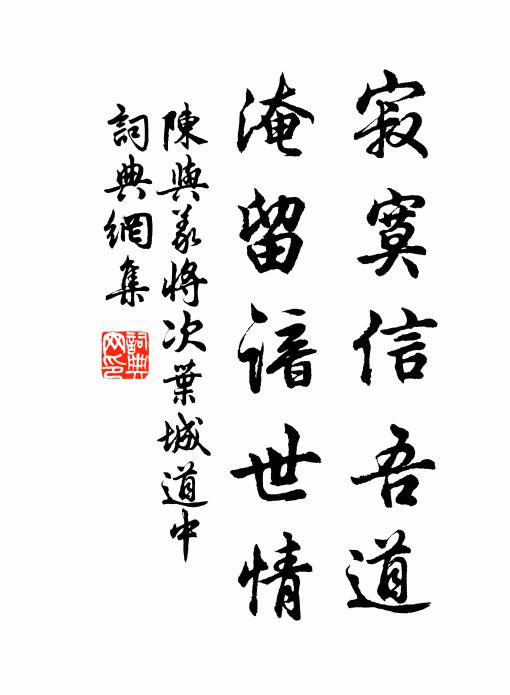 寂寞信吾道
淹留諳世情
陳與義將次葉城道中
詞典網集
詞典網印